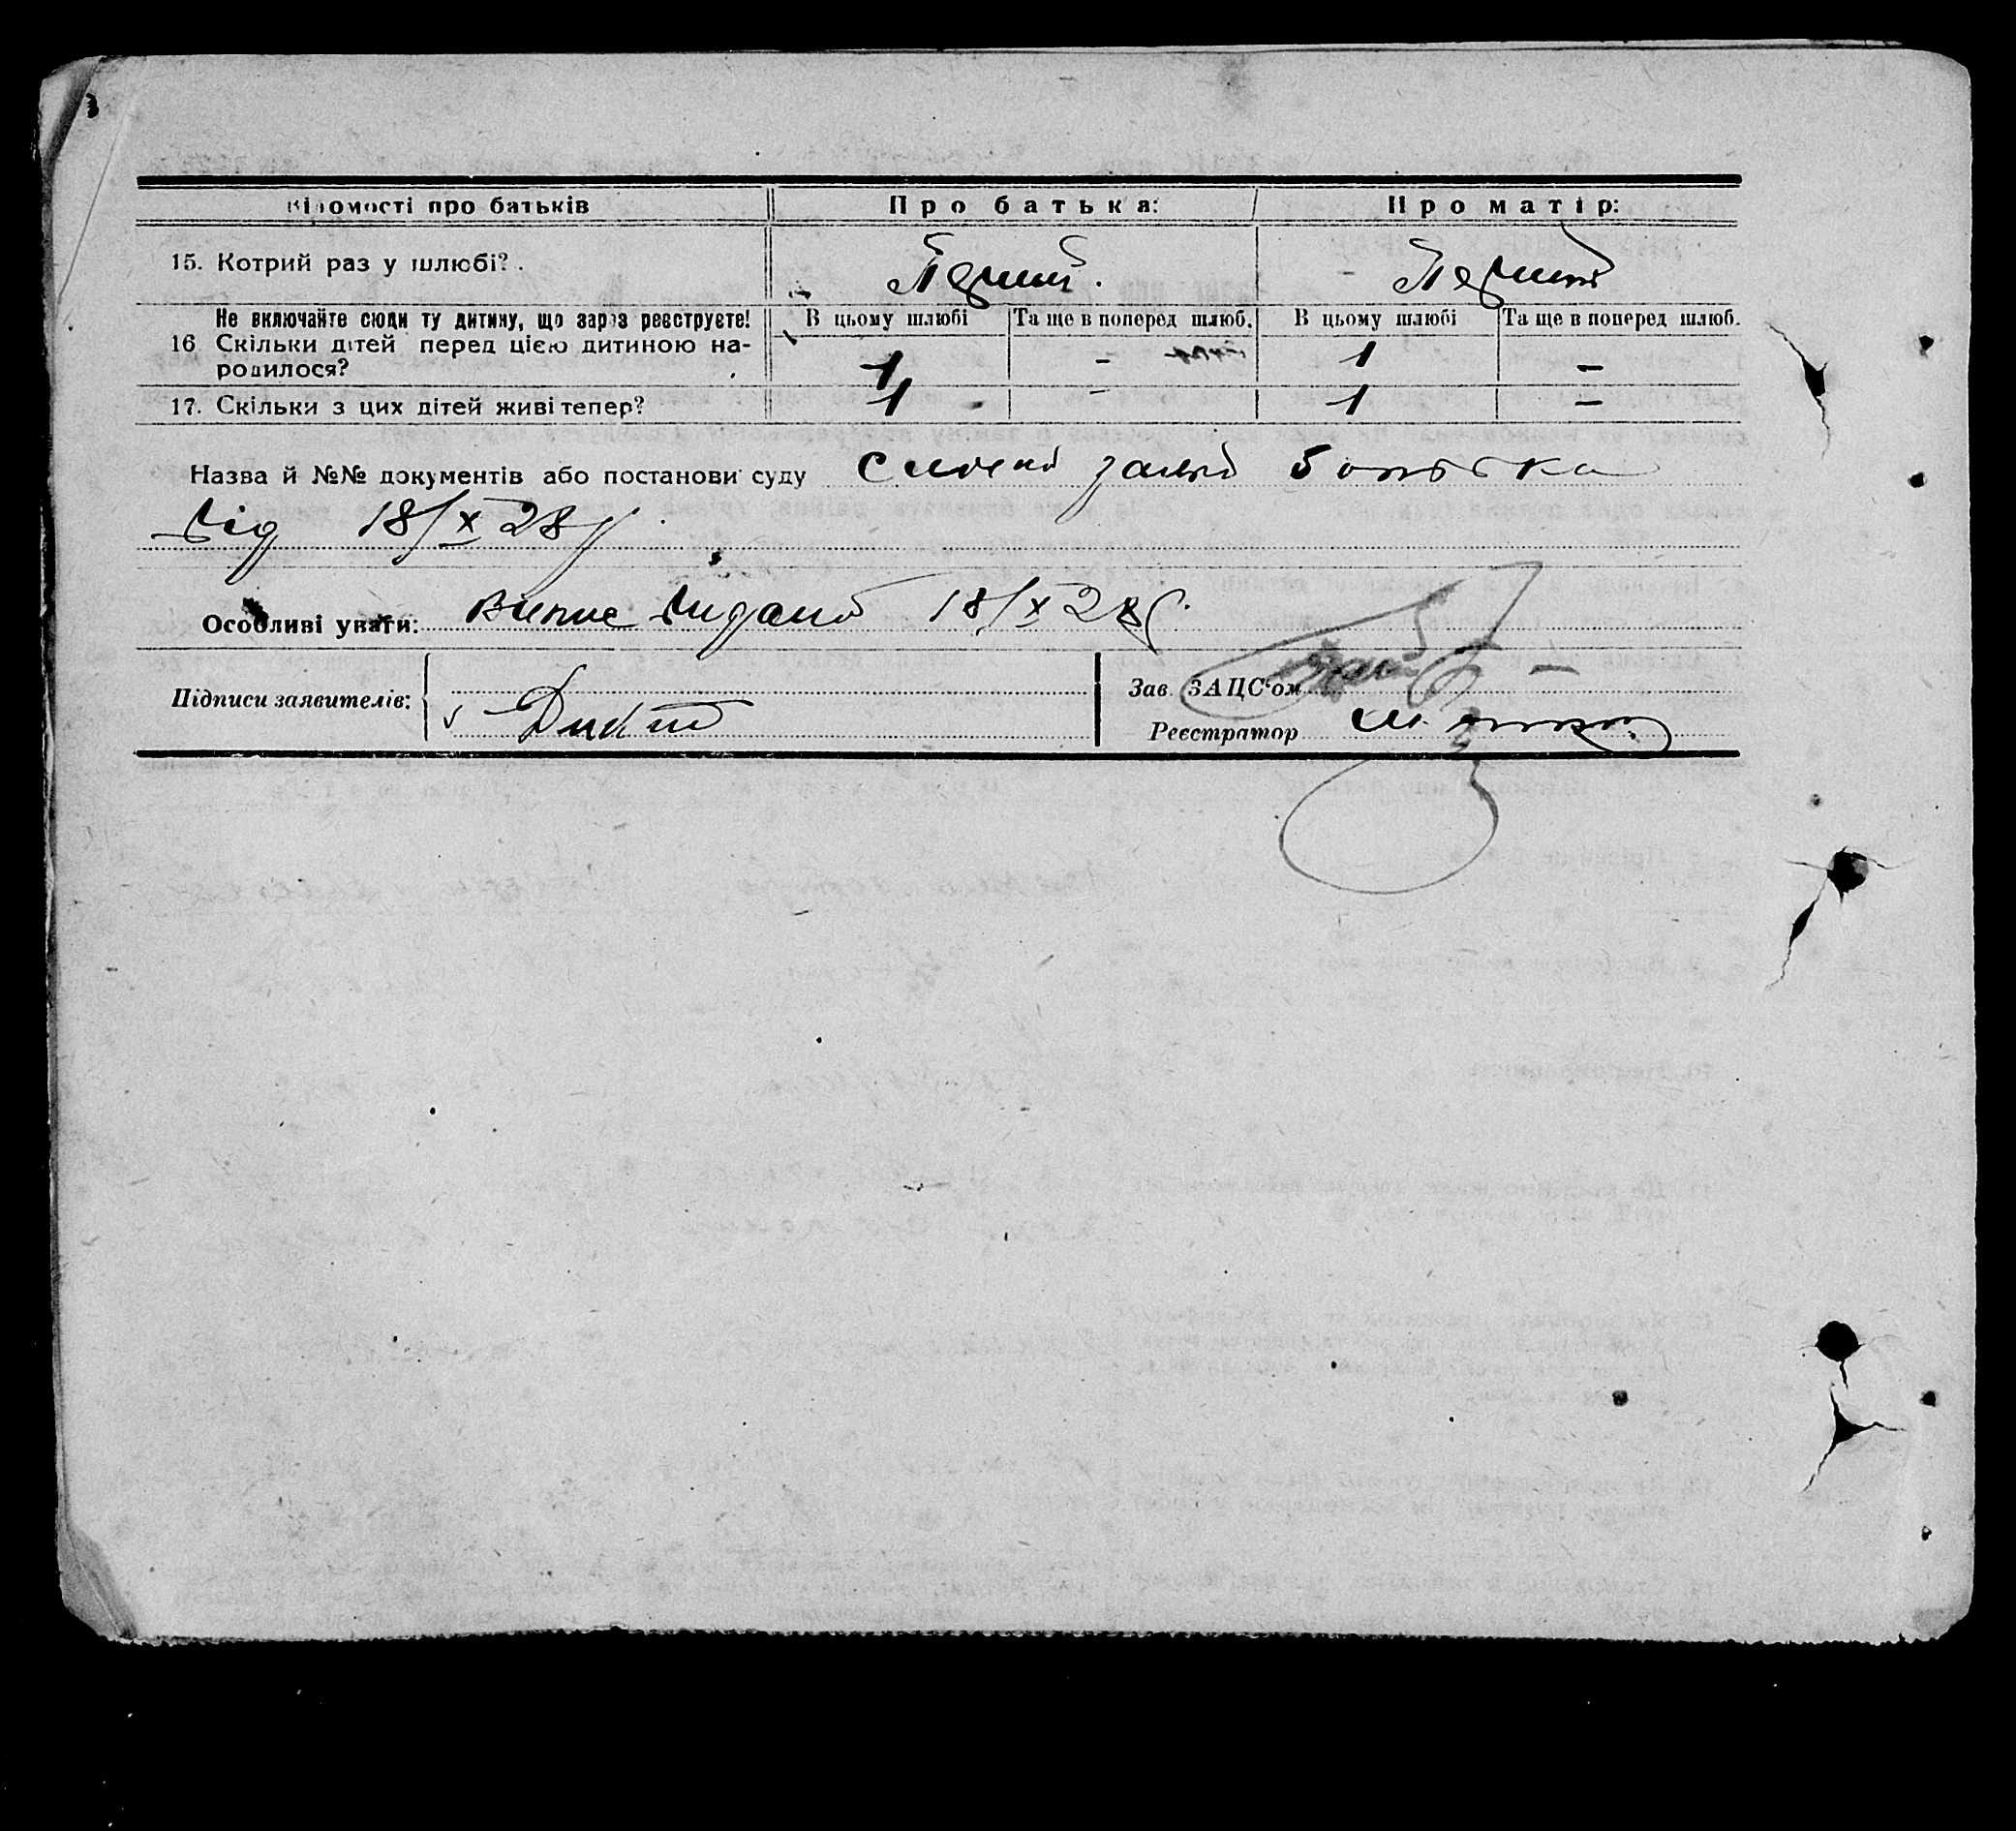 Відомості про батьків Про батька: Про матір:
15. Котрий раз у шлюбі? Перший. Перший
Не включайте сюди ту дитину, що зараз реєструєте! В цьому шлюбі Та ще в поперед шлюб. В цьому шлюбі Та ще в поперед шлюб.
16 Скільки дітей перед цією дитиною на-
родилося? 1 – 1 –
17. Скільки з цих дітей живі тепер? 1 – 1 –
Назва й №№ документів або постанови суду заява батька
від 18/X 28 р.
Особливі уваги: Випис видано 18/X 28 р.
Підписи заявителів:
Зав. ЗАЦС'ом
Реєстратор